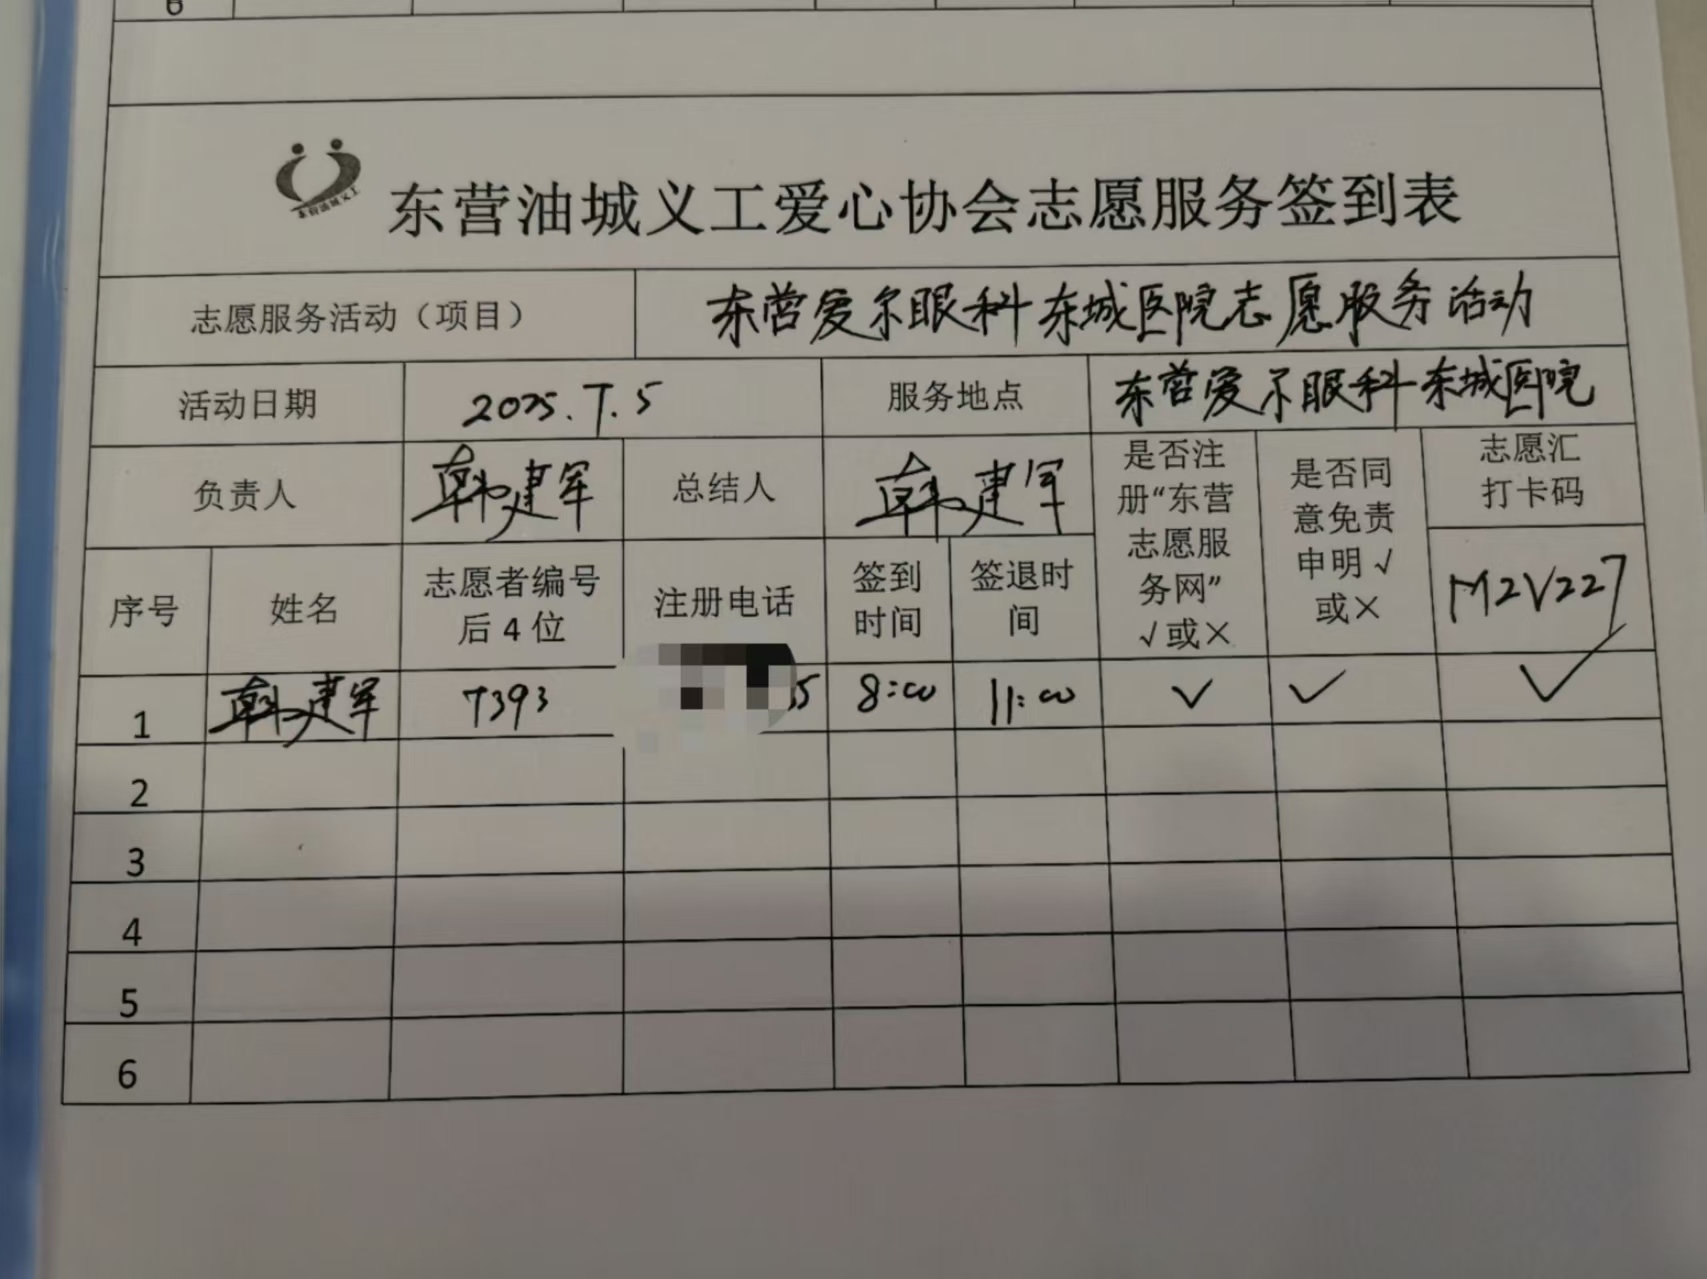 6
东营油城义工
东营油城义工爱心协会志愿服务签到表
志愿服务活动（项目） 东营爱尔眼科东城医院志愿服务活动
活动日期 2025.7.5 服务地点 东营爱尔眼科东城医院
负责人 韩建军 总结人 韩建军 是否注册“东营志愿服务网”√或× 是否同意免责申明√或× 志愿汇打卡码
M2V227
序号 姓名 志愿者编号后4位 注册电话 签到时间 签退时间
1 韩建军 7393 5 8:00 11:00 ✓ ✓ ✓
2
3
4
5
6